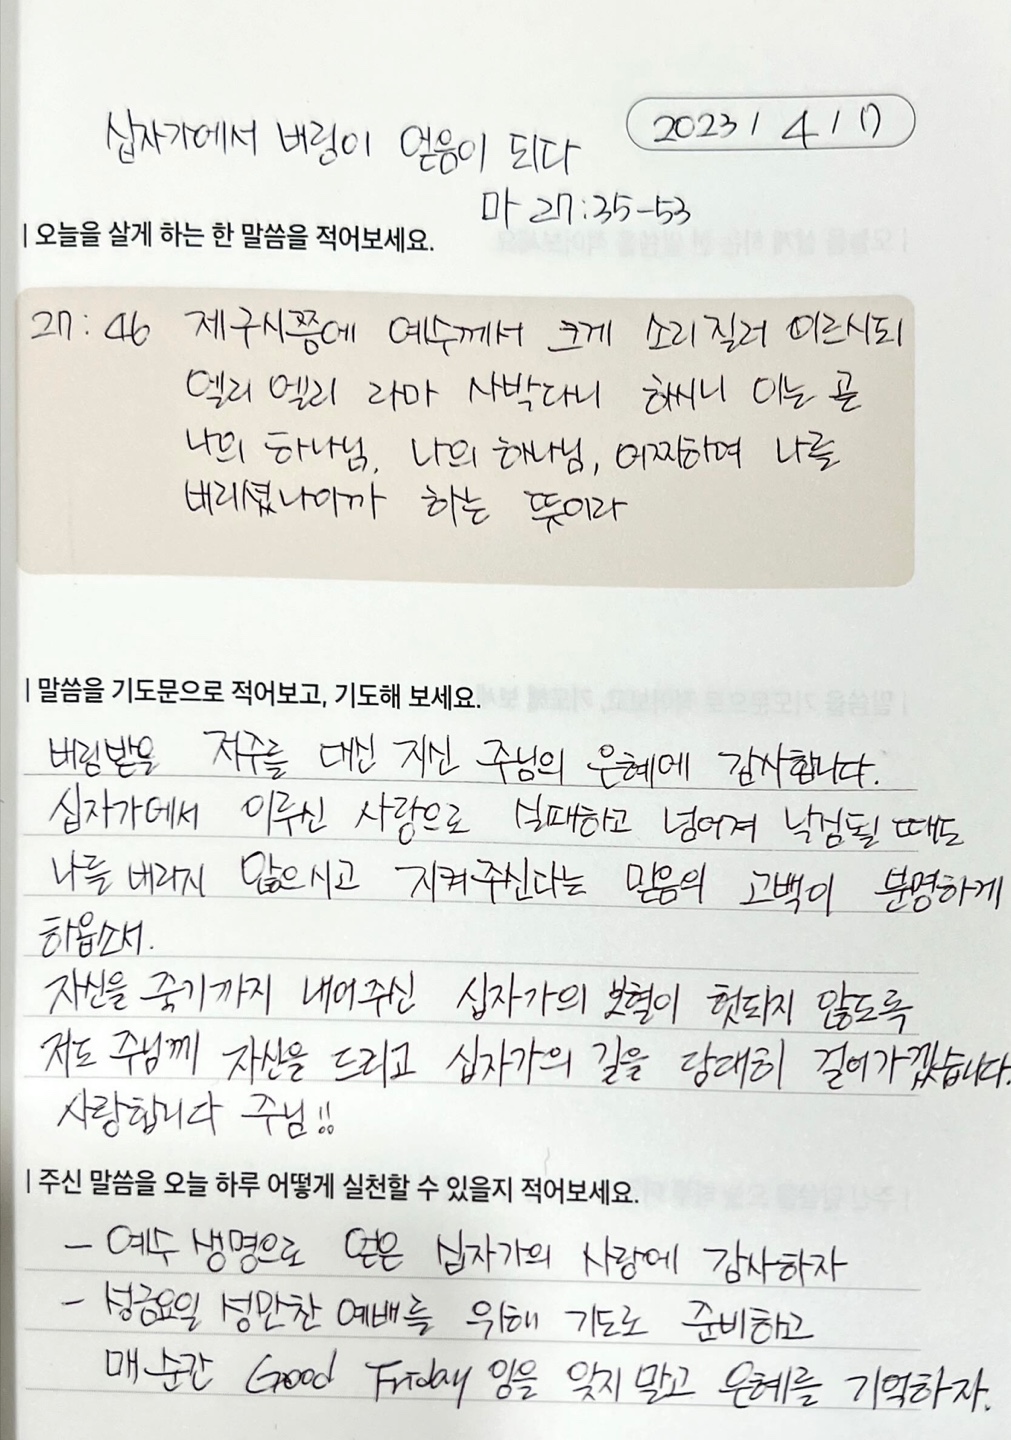 십자가에서 버림이 얻음이 되다
2023 / 4 / 17
마 27:35-53
| 오늘을 살게 하는 한 말씀을 적어보세요.
27:46 제구시쯤에 예수께서 크게 소리 질러 이르시되
엘리 엘리 라마 사박다니 하시니 이는 곧
나의 하나님, 나의 하나님, 어찌하여 나를
버리셨나이까 하는 뜻이라
| 말씀을 기도문으로 적어보고, 기도해 보세요.
버림받을 저주를 대신 지신 주님의 은혜에 감사합니다.
십자가에서 이루신 사랑으로 실패하고 넘어져 낙검될 때도
나를 버리지 않으시고 지켜주신다는 믿음의 고백이 분명하게
하옵소서.
자신을 죽기까지 내어주신 십자가의 보혈이 헛되지 않도록
저도 주님께 자신을 드리고 십자가의 길을 당대히 걸어가겠습니다.
사랑합니다 주님!!
| 주신 말씀을 오늘 하루 어떻게 실천할 수 있을지 적어보세요.
- 예수 생명으로 얻은 십자가의 사랑에 감사하자
- 성금요일 성만찬 예배를 위해 기도로 준비하고
매순간 Good Friday 임을 잊지 말고 은혜를 기억하자.